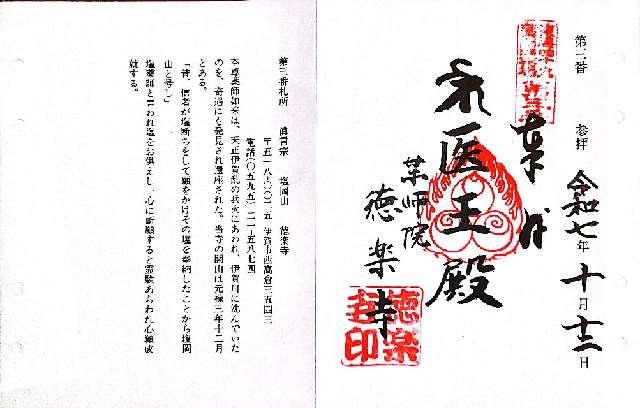 第三番
参拝 令和七年十月十二日
奉拝
医王殿
薬師院
徳楽寺
徳楽寺印
第三番札所 真言宗 塩岡山 徳楽寺
〒五一八-〇〇二五 伊賀市西高倉三五四三
電話(〇五九五)二一-五八七四
本尊薬師如来は、天正伊賀乱の兵火にあわれ、伊賀川に沈んでいた
のを、奇遇にも発見され還座された。当寺の開山は元禄三年十二月
とある。
「昔、信者が塩断ちをして願をかけその塩を奉納したことから塩岡
山と号し」
塩薬師と言われ塩をお供えし、心に祈願すると霊験あらわれ心願成
就する。